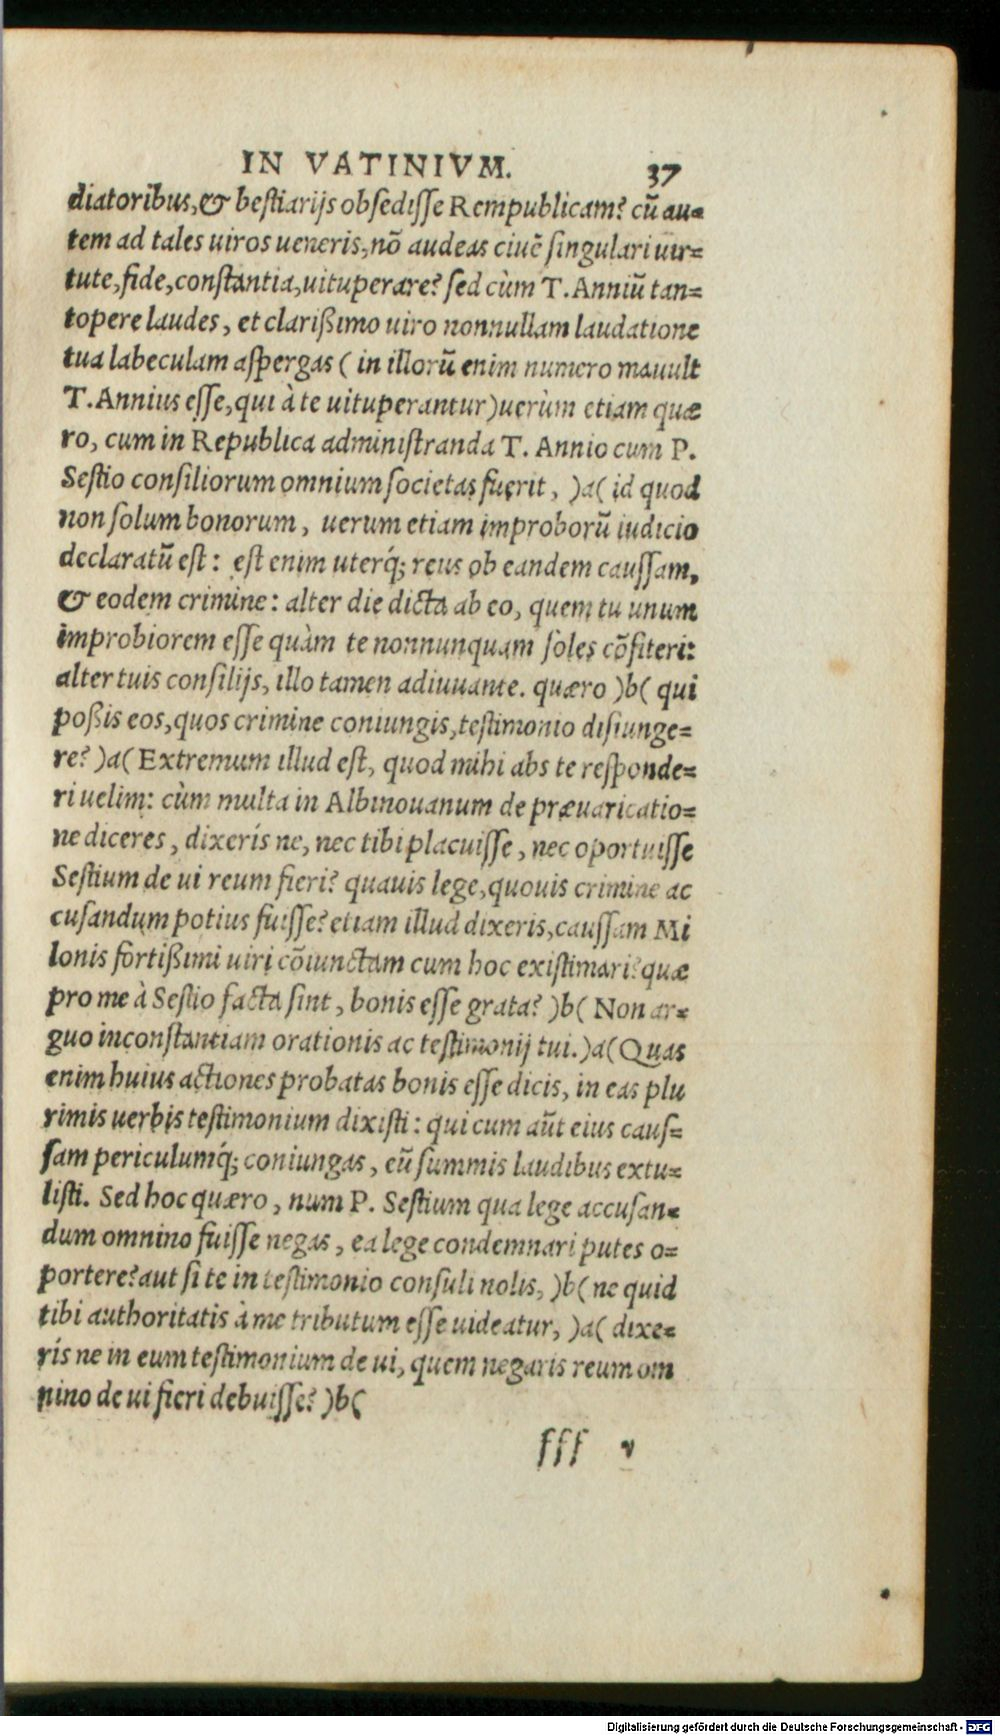 IN VATINIVM. 37
diatoribus,& bestiarijs obsedisse Rempublicam? cū au=
tem ad tales uiros ueneris,nō audeas ciuē singulari uir=
tute,fide,constantia,uituperare? sed cùm T.Anniū tan=
topere laudes, et clarißimo uiro nonnullam laudatione
tua labeculam aspergas ( in illorū enim numero mauult
T.Annius esse,qui à te uituperantur)uerùm etiam quæ
ro, cum in Republica administranda T. Annio cum P.
Sestio consiliorum omnium societas fuerit, )a( id quod
non solum bonorum, uerum etiam improborū iudicio
declaratū est: est enim uterq́; reus ob eandem caussam,
& eodem crimine: alter die dicta ab eo, quem tu unum
improbiorem esse quàm te nonnunquam soles cōfiteri:
alter tuis consilijs, illo tamen adiuuante. quæro )b( qui
poßis eos,quos crimine coniungis,testimonio disiunge=
re? )a( Extremum illud est, quod mihi abs te responde=
ri uelim: cùm multa in Albinouanum de præuaricatio=
ne diceres, dixerís ne, nec tibi placuisse, nec oportuisse
Sestium de ui reum fieri? quauis lege,quouis crimine ac
cusandum potius fuisse? etiam illud dixeris,caussam Mi
lonis fortißimi uiri cōiunctam cum hoc existimari?quæ
pro me à Sestio facta sint, bonis esse grata? )b( Non ar=
guo inconstantiam orationis ac testimonij tui.)a( Quas
enim huius actiones probatas bonis esse dicis, in eas plu
rimis uerbis testimonium dixisti: qui cum aūt eius caus=
sam periculumq́; coniungas, eū summis laudibus extu=
listi. Sed hoc quæro, num P. Sestium qua lege accusan=
dum omnino fuisse negas, ea lege condemnari putes o=
portere?aut si te in testimonio consuli nolis, )b( ne quid
tibi authoritatis à me tributum esse uideatur, )a( dixe=
rís ne in eum testimonium de ui, quem negaris reum om
nino de ui fieri debuisse? )b(
fff v
Digitalisierung gefördert durch die Deutsche Forschungsgemeinschaft - DFG